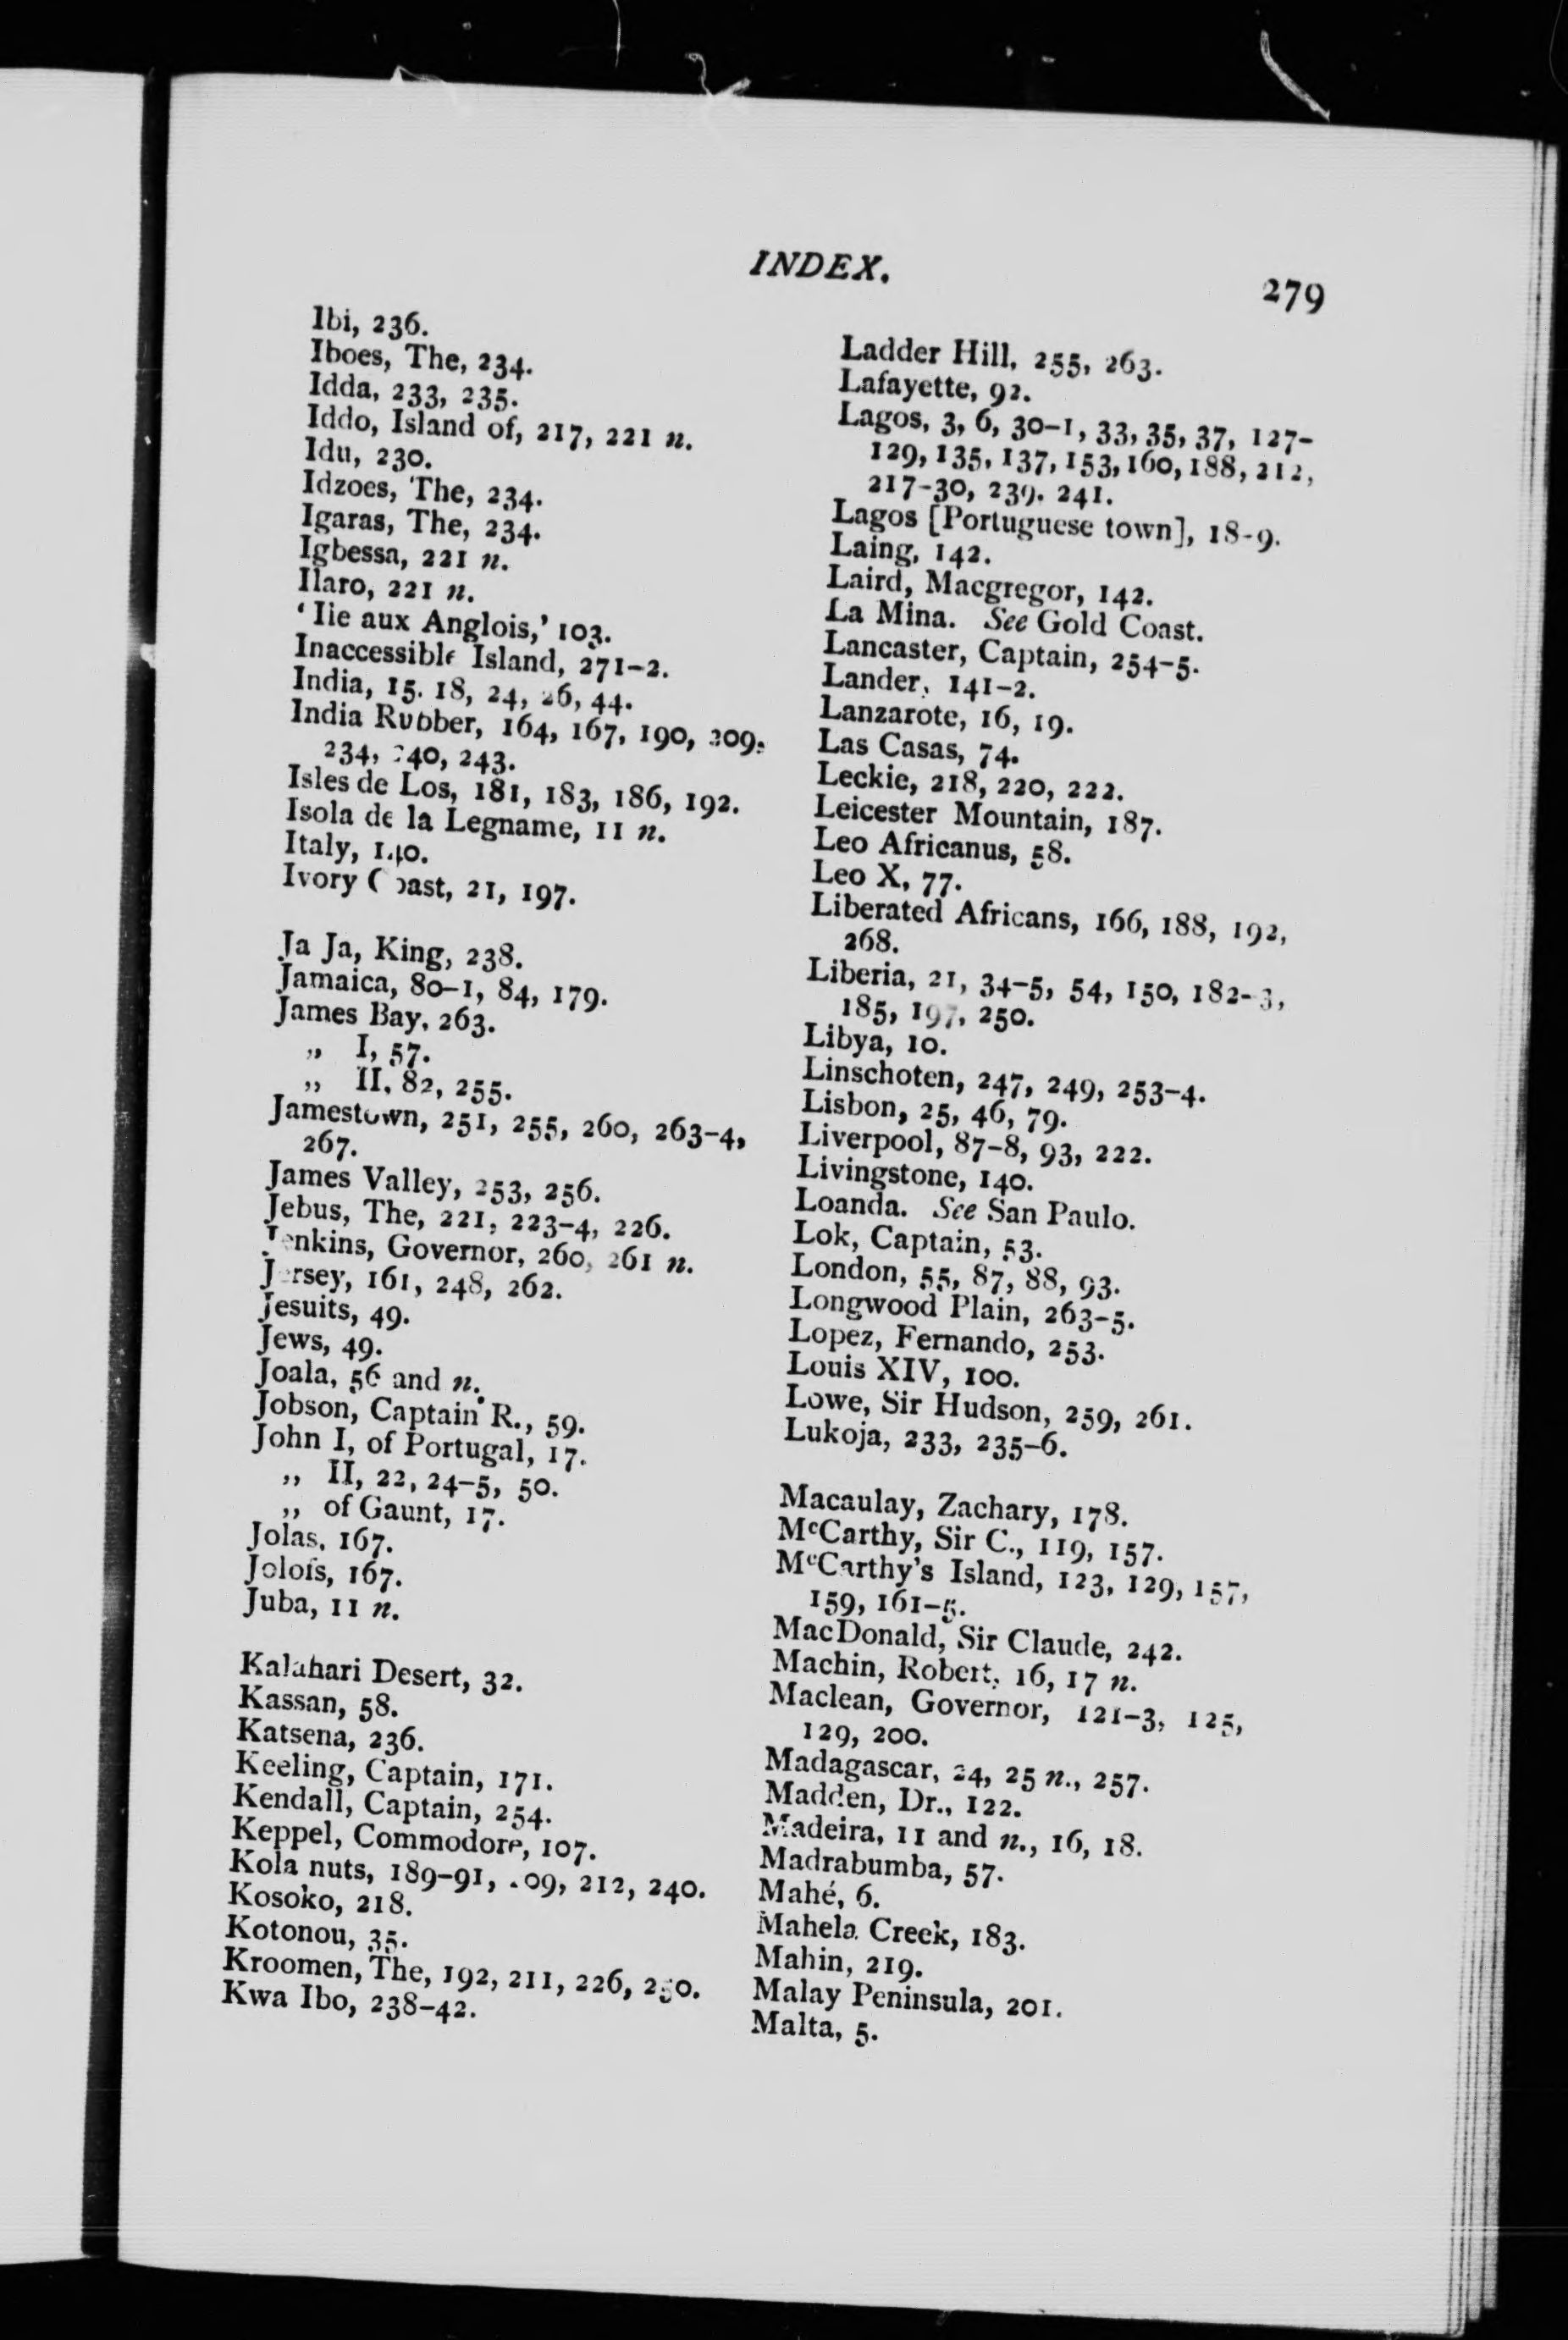 INDEX.
279
Ibi, 236.
Iboes, The, 234.
Idda, 233, 235.
Iddo, Island of, 217, 221 n.
Idu, 230.
Idzoes, The, 234.
Igaras, The, 234.
Igbessa, 221 n.
Ilaro, 221 n.
‘Ile aux Anglois,’ 103.
Inaccessible Island, 271–2.
India, 15, 18, 24, 26, 44.
India Rubber, 164, 167, 190, 209,
234, 240, 243.
Isles de Los, 181, 183, 186, 192.
Isola de la Legname, 11 n.
Italy, 140.
Ivory Coast, 21, 197.
Ja Ja, King, 238.
Jamaica, 80–1, 84, 179.
James Bay, 263.
„ I, 57.
„ II, 82, 255.
Jamestown, 251, 255, 260, 263–4,
267.
James Valley, 253, 256.
Jebus, The, 221, 223–4, 226.
Jenkins, Governor, 260, 261 n.
Jersey, 161, 248, 262.
Jesuits, 49.
Jews, 49.
Joala, 56 and n.
Jobson, Captain R., 59.
John I, of Portugal, 17.
„ II, 22, 24–5, 50.
„ of Gaunt, 17.
Jolas, 167.
Jolofs, 167.
Juba, 11 n.
Kalahari Desert, 32.
Kassan, 58.
Katsena, 236.
Keeling, Captain, 171.
Kendall, Captain, 254.
Keppel, Commodore, 107.
Kola nuts, 189–91, 209, 212, 240.
Kosoko, 218.
Kotonou, 35.
Kroomen, The, 192, 211, 226, 250.
Kwa Ibo, 238–42.
Ladder Hill, 255, 263.
Lafayette, 92.
Lagos, 3, 6, 30–1, 33, 35, 37, 127–
129, 135, 137, 153, 160, 188, 212,
217–30, 239, 241.
Lagos [Portuguese town], 18–9.
Laing, 142.
Laird, Macgregor, 142.
La Mina. See Gold Coast.
Lancaster, Captain, 254–5.
Lander, 141–2.
Lanzarote, 16, 19.
Las Casas, 74.
Leckie, 218, 220, 222.
Leicester Mountain, 187.
Leo Africanus, 58.
Leo X, 77.
Liberated Africans, 166, 188, 192,
268.
Liberia, 21, 34–5, 54, 150, 182–3,
185, 197, 250.
Libya, 10.
Linschoten, 247, 249, 253–4.
Lisbon, 25, 46, 79.
Liverpool, 87–8, 93, 222.
Livingstone, 140.
Loanda. See San Paulo.
Lok, Captain, 53.
London, 55, 87, 88, 93.
Longwood Plain, 263–5.
Lopez, Fernando, 253.
Louis XIV, 100.
Lowe, Sir Hudson, 259, 261.
Lukoja, 233, 235–6.
Macaulay, Zachary, 178.
McCarthy, Sir C., 119, 157.
McCarthy's Island, 123, 129, 157,
159, 161–5.
MacDonald, Sir Claude, 242.
Machin, Robert, 16, 17 n.
Maclean, Governor, 121–3, 125,
129, 200.
Madagascar, 24, 25 n., 257.
Madden, Dr., 122.
Madeira, 11 and n., 16, 18.
Madrabumba, 57.
Mahé, 6.
Mahela Creek, 183.
Mahin, 219.
Malay Peninsula, 201.
Malta, 5.